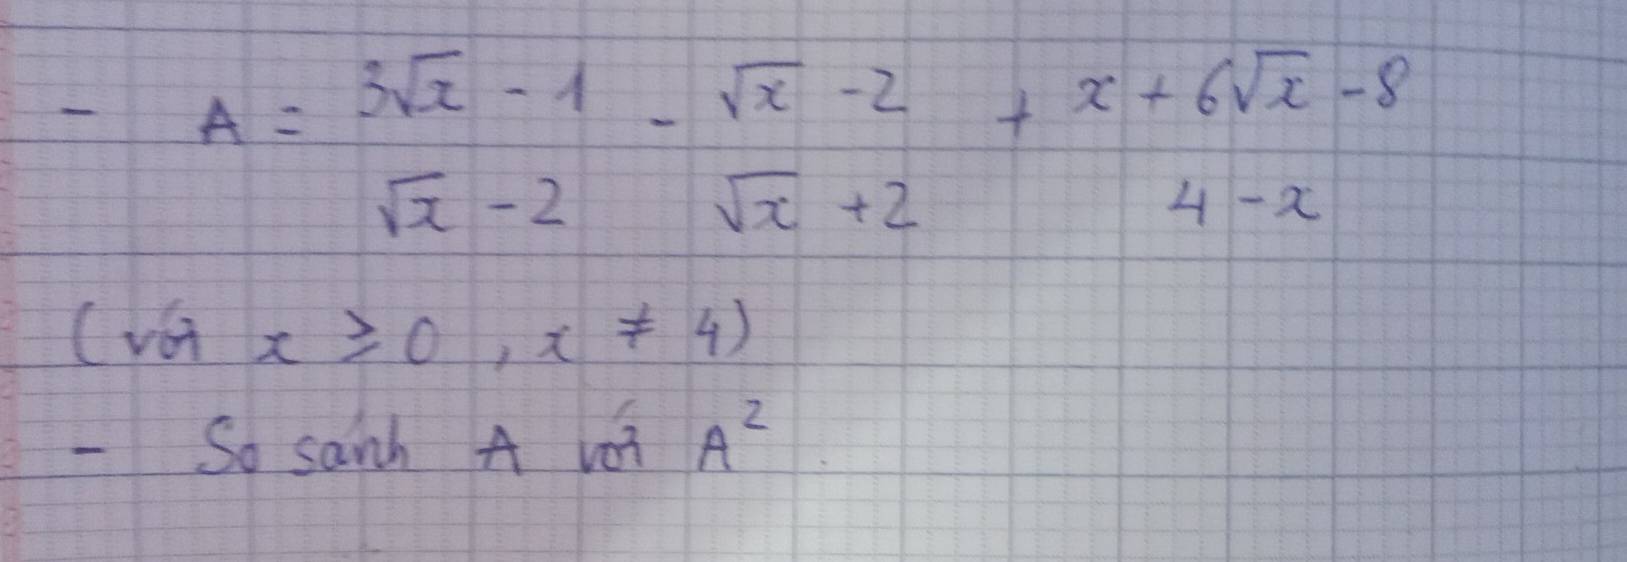 - A = 3√x - 1 - √x - 2 + x + 6√x - 8
√x - 2 √x + 2 4 - x
(với x ≥ 0, x ≠ 4)
- So sánh A với A²